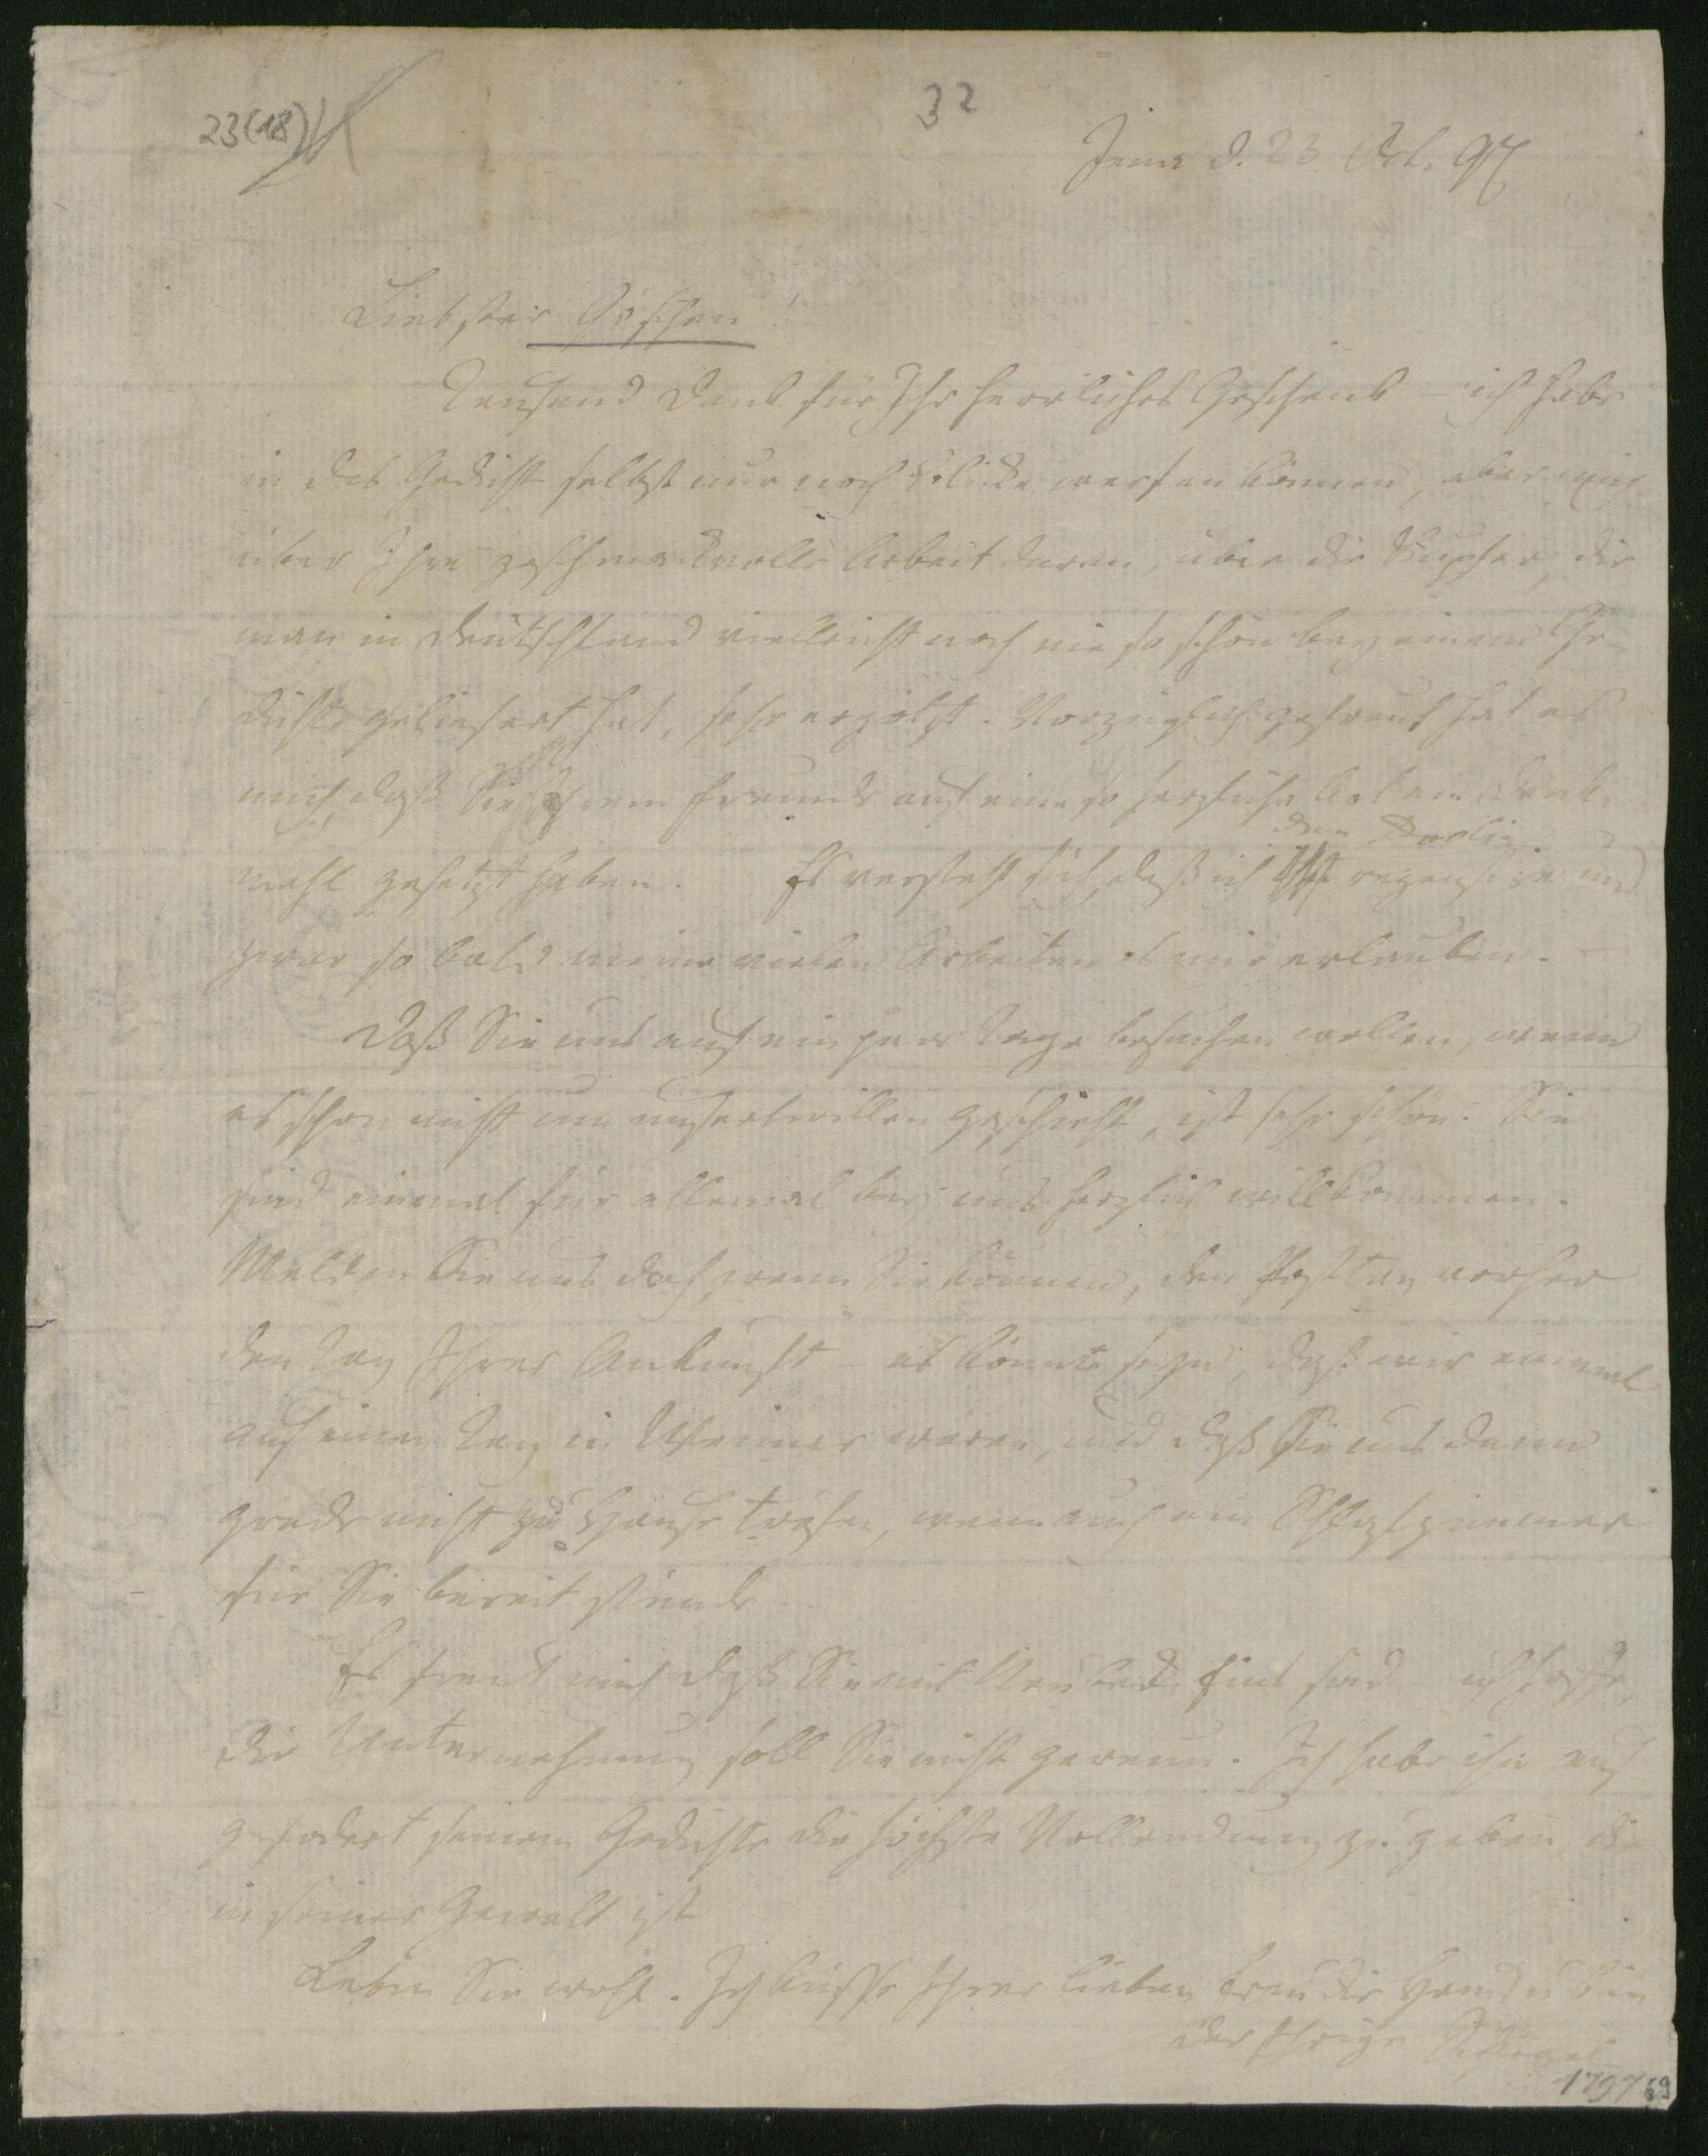 23(18)
32
Jena d. 23 Oct. 97
Liebster Göschen!
Tausend Dank für Ihr herrliches Geschenk – ich habe
in das Gedicht selbst nur noch Blicke werfen können, aber mich
über Ihre geschmackvolle Arbeit daran, über die Kupfer, die
man in Deutschland vielleicht noch nie so schön bey einem Ge-
dichte geliefert hat, sehr ergötzt. Vorzüglich gefreut hat es
mich, daß Sie Ihrem Freunde auf eine so herzliche Art ein Denk-
mahl gesetzt haben. Es versteht sich, daß ich den recensire und
zwar so bald meine vielen Arbeiten es mir erlauben. –
Daß Sie uns auf ein paar Tage besuchen wollen, wenn
es schon nicht um unsertwillen geschieht, ist sehr schön. Sie
sind einmal für allemal bey uns herzlich willkommen.
Melden Sie uns doch, wenn Sie können, den Posttag vorher
den Tag Ihrer Ankunft – es könnte seyn, daß wir einmal
auf einen Tag in Weimar wären, und daß Sie uns dann
grade nicht zu Hause träfen, wenn auch ein Schlafzimmer
für Sie bereit stünde.
Es freut mich daß Sie mit Neubeck Eins sind – ich hoffe,
die Unternehmung soll Sie nicht gereun. Ich habe ihn auf-
gefodert seinem Gedichte die höchste Vollendung zu geben, die
in seiner Gewalt ist
Leben Sie wohl. Ich küsse Ihrer lieben Frau die Hand u bin
der Ihrige Schlegel
1797
69